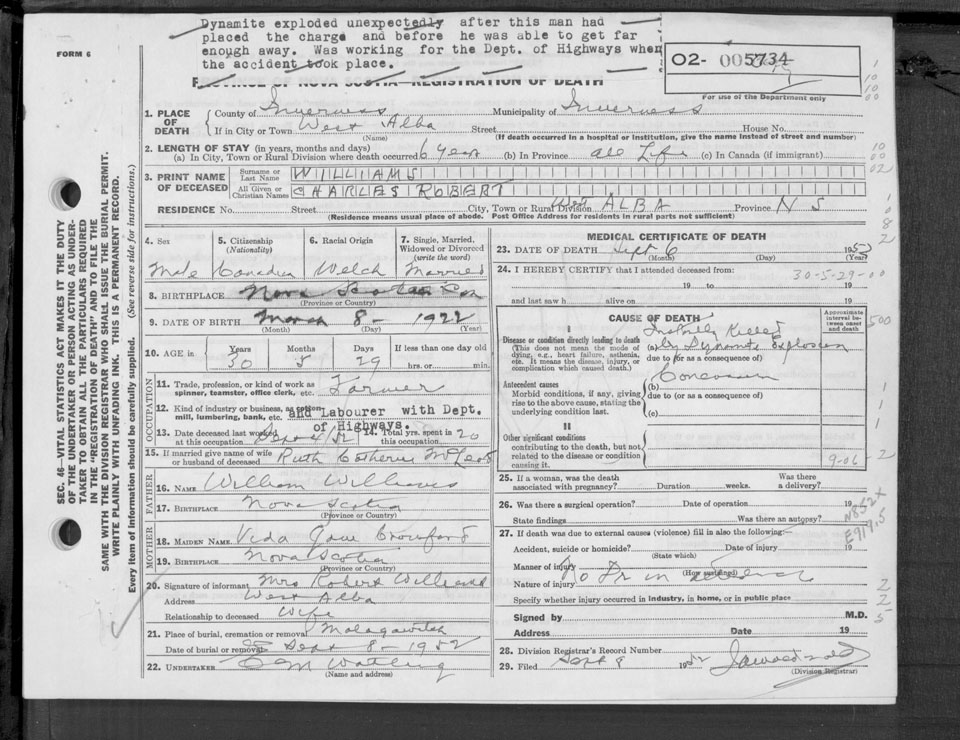 Dynamite exploded unexpectedly after this man had
placed the charge and before he was able to get far
enough away. Was working for the Dept. of Highways when
the accident took place.
FORM 6
O2- 005734
For use of the Department only
PROVINCE OF NOVA SCOTIA—REGISTRATION OF DEATH
1. PLACE OF DEATH County of Inverness Municipality of Inverness
If in City or Town West Alba Street House No.
(Name) (If death occurred in a hospital or institution, give the name instead of street and number)
2. LENGTH OF STAY (in years, months and days)
(a) In City, Town or Rural Division where death occurred 6 years (b) In Province all Life (c) In Canada (if immigrant)
3. PRINT NAME OF DECEASED Surname or Last Name WILLIAMS
All Given or Christian Names CHARLES ROBERT
RESIDENCE No. Street City, Town or Rural Division West ALBA Province N S
(Residence means usual place of abode. Post Office Address for residents in rural parts not sufficient)
4. Sex 5. Citizenship (Nationality) 6. Racial Origin 7. Single, Married, Widowed or Divorced (write the word)
Male Canadian Welch Married
8. BIRTHPLACE Nova Scotia
(Province or Country)
9. DATE OF BIRTH March 8 - 1922
(Month) (Day) (Year)
10. AGE in Years Months Days If less than one day old
30 5 29 hrs. or min.
OCCUPATION
11. Trade, profession, or kind of work as spinner, teamster, office clerk, etc. Farmer
12. Kind of industry or business, as cotton-mill, lumbering, bank, etc. and Labourer with Dept. of Highways.
13. Date deceased last worked at this occupation Sept 4/52 14. Total yrs. spent in this occupation 20
15. If married give name of wife or husband of deceased Ruth Catherine McLeod
FATHER
16. NAME William Williams
17. BIRTHPLACE Nova Scotia
(Province or Country)
MOTHER
18. MAIDEN NAME Veda Jane Crowford
19. BIRTHPLACE Nova Scotia
(Province or Country)
20. Signature of informant Mrs Robert Williams
Address West Alba
Relationship to deceased Wife
21. Place of burial, cremation or removal Malagawatch
Date of burial or removal Sept 8 - 1952
22. UNDERTAKER C M Watling
(Name and address)
MEDICAL CERTIFICATE OF DEATH
23. DATE OF DEATH Sept 6 1952
(Month) (Day) (Year)
24. I HEREBY CERTIFY that I attended deceased from:
30-5-29-00
19 to 19
and last saw h alive on 19
CAUSE OF DEATH
Approximate interval between onset and death
I
Disease or condition directly leading to death Killed
(This does not mean the mode of dying, e.g., heart failure, asthenia, etc. It means the disease, injury, or complication which caused death.)
(a) by Dynamite Explosion
due to (or as a consequence of)
Antecedent causes
Morbid conditions, if any, giving rise to the above cause, stating the underlying condition last.
(b)
due to (or as a consequence of)
(c)
II
Other significant conditions
contributing to the death, but not related to the disease or condition causing it.
9-06
25. If a woman, was the death associated with pregnancy? Duration weeks. Was there a delivery?
26. Was there a surgical operation? Date of operation 19
State findings Was there an autopsy?
27. If death was due to external causes (violence) fill in also the following:—
Accident, suicide or homicide? Date of injury 19
(State which)
Manner of injury
(How sustained)
Nature of injury No Dr in
Specify whether injury occurred in industry, in home, or in public place
Signed by M.D.
Address Date 19
28. Division Registrar's Record Number
29. Filed Sept 8 1952
(Division Registrar)
N852X
E919.5
SEC. 46—VITAL STATISTICS ACT MAKES IT THE DUTY
OF THE UNDERTAKER OR PERSON ACTING AS UNDER-
TAKER TO OBTAIN ALL THE PARTICULARS REQUIRED
IN THE "REGISTRATION OF DEATH" AND TO FILE THE
SAME WITH THE DIVISION REGISTRAR WHO SHALL ISSUE THE BURIAL PERMIT.
WRITE PLAINLY WITH UNFADING INK. THIS IS A PERMANENT RECORD.
Every item of information should be carefully supplied. (See reverse side for instructions.)